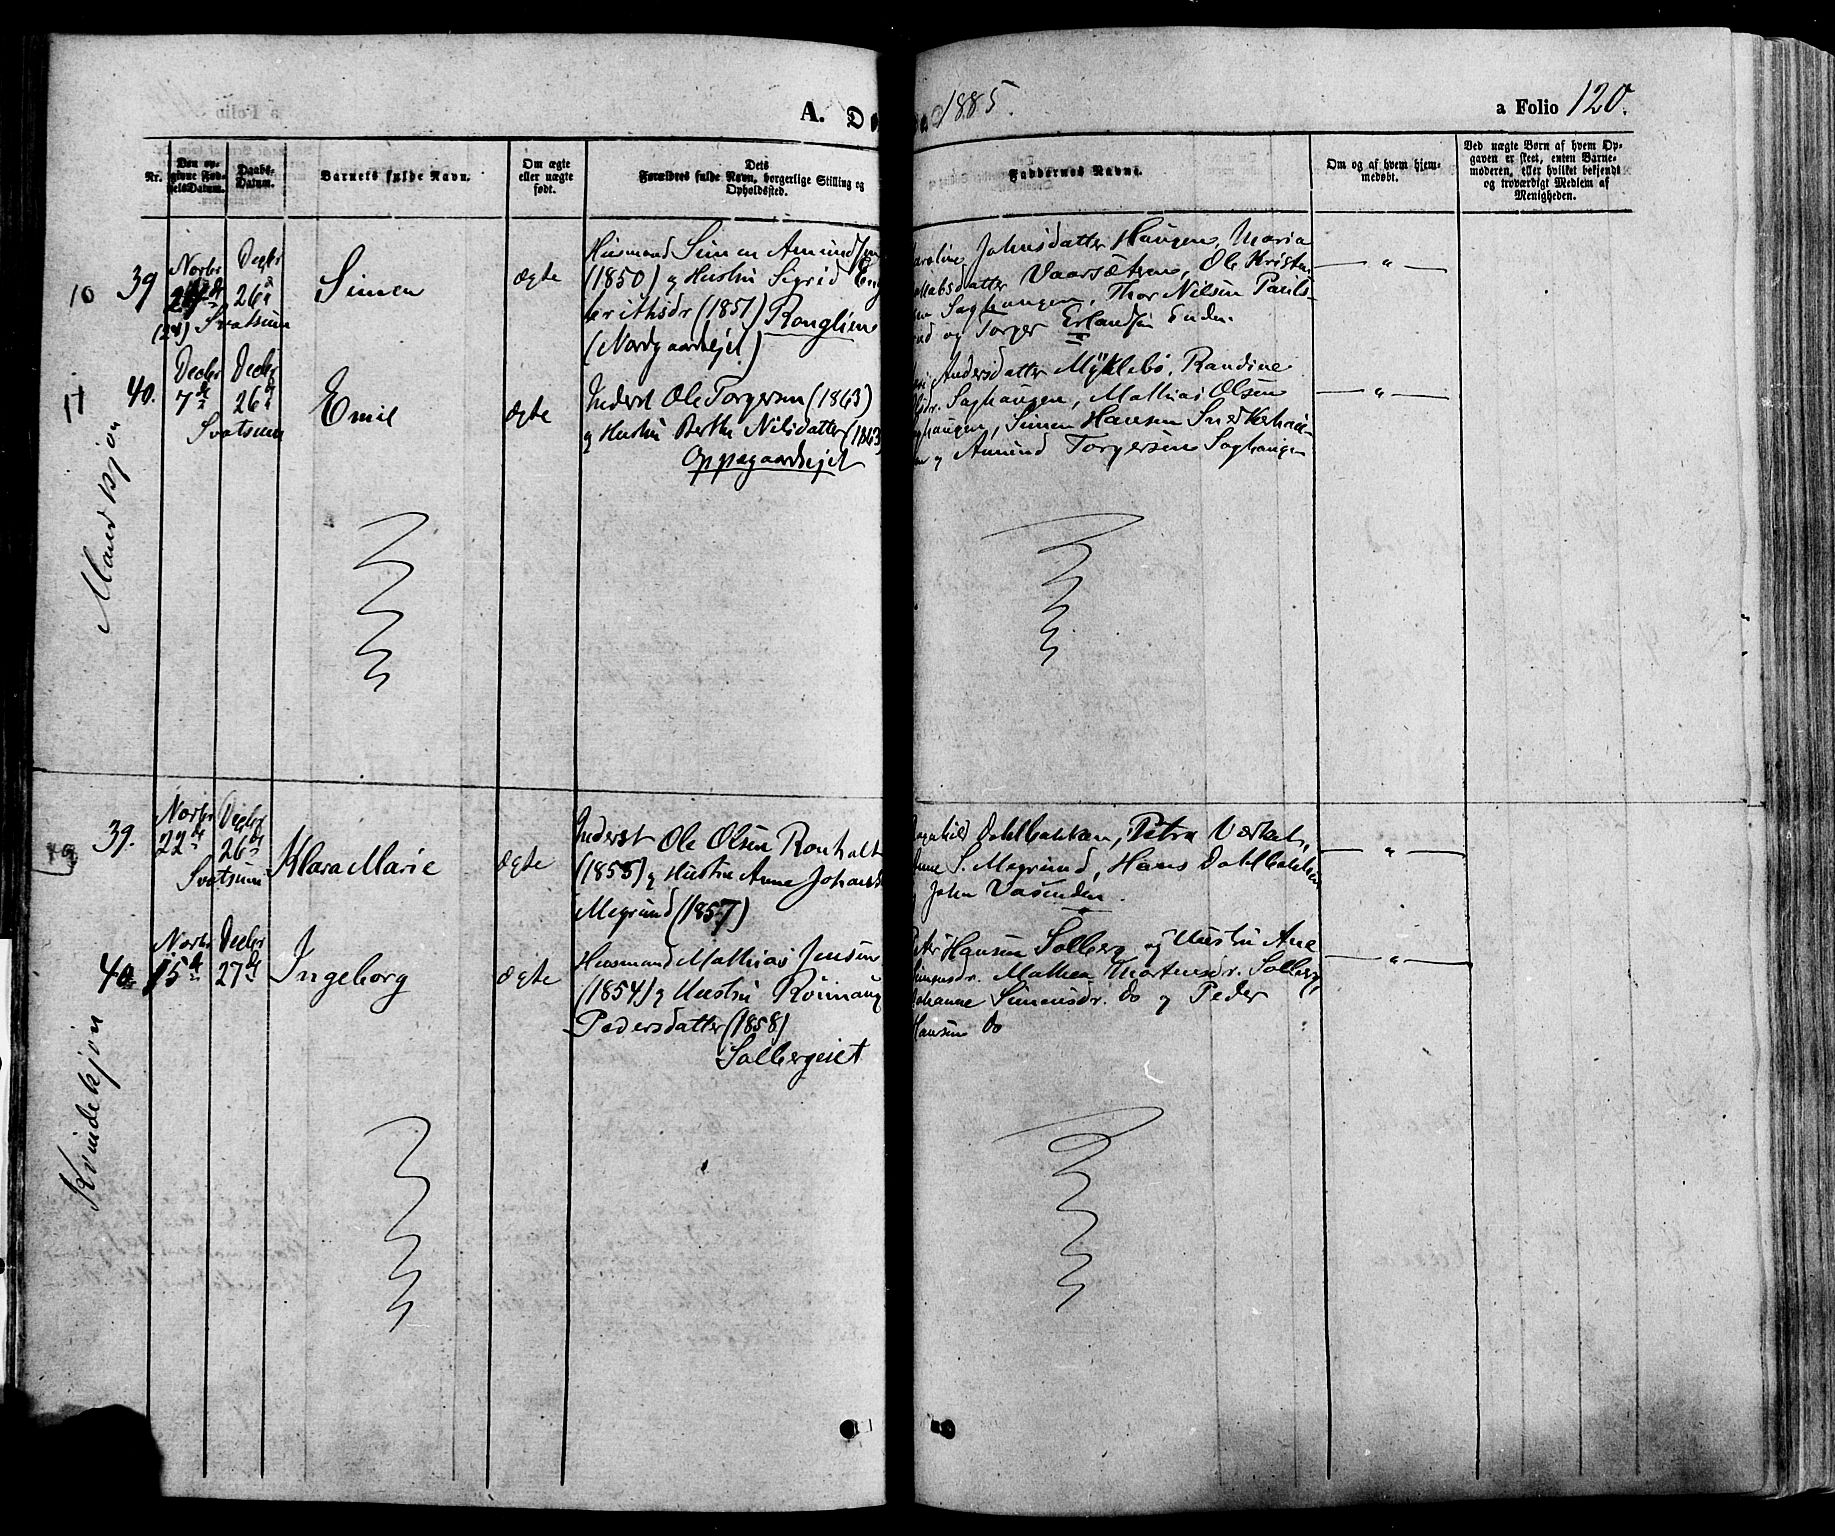 A. Dø
e. 1885.
a Folio 120.
Nr.
Den opgivne FødselsDatum.
Daabs-Datum.
Barnets fulde Navn.
Om ægte eller uægte født.
Dets Forældres fulde Navn, borgerlige Stilling og Opholdssted.
Faddernes Navne.
Om og af hvem hjemmedøbt.
Ved uægte Børn af hvem Opgaven er skeet, enten Barnemoderen, eller hvilket bekjendt og troværdigt Medlem af Menigheden.
Mandkjøn
10
39
Novbr
(24)
Decbr
26
Svatsum
Simen
ægte
Husmand Simen Amundsen
(1850) og Hustru Sigrid Eng
britsdr (1851) Ronglien
(Nordgaardsejet)
aroline Johnsdatter Haugen, Maria
Vaarsætren, Ole Kristen
Saghaugen, Thor Nilsen Pauls-
rud og Torger Erlandsen Enden.
— " —
11
40.
Decbr
7de
Decbr
26de
Svatsum
Emil
ægte
Inderst Ole Torgersen (1863)
og Hustru Berthe Nilsdatter (1863
Oppegaardsejet
Andersdatter Myklebø, Randine
Olsdr. Saghaugen, Mathias Olsen
aghaugen, Simen Hansen Snedkerhau-
en og Amund Torgersen Saghaugen
— " —
Kvindekjøn
19
39.
Novbr
22de
Decbr
26de
Svatsum
Klara Marie
ægte
Inderst Ole Olsen Ronhalt
(1855) og Hustru Anne Johansd
Megrund (1857)
agnhild Dahlbakken, Petra Værkets,
Anne S. Megrund, Hans Dahlbakken
og John Vasenden.
— " —
40.
Novbr
15de
Decbr
27de
Ingeborg
ægte
Husmand Mathias Jensen
(1854) og Hustru Rønnaug
Pedersdatter (1858)
Solbergeiet
Peter Hansen Solberg og Hustru Ane
Simensdr. Mathea Mortensdr. Solberg,
Johanne Simensdr. do og Peder
Hansen do
— " —